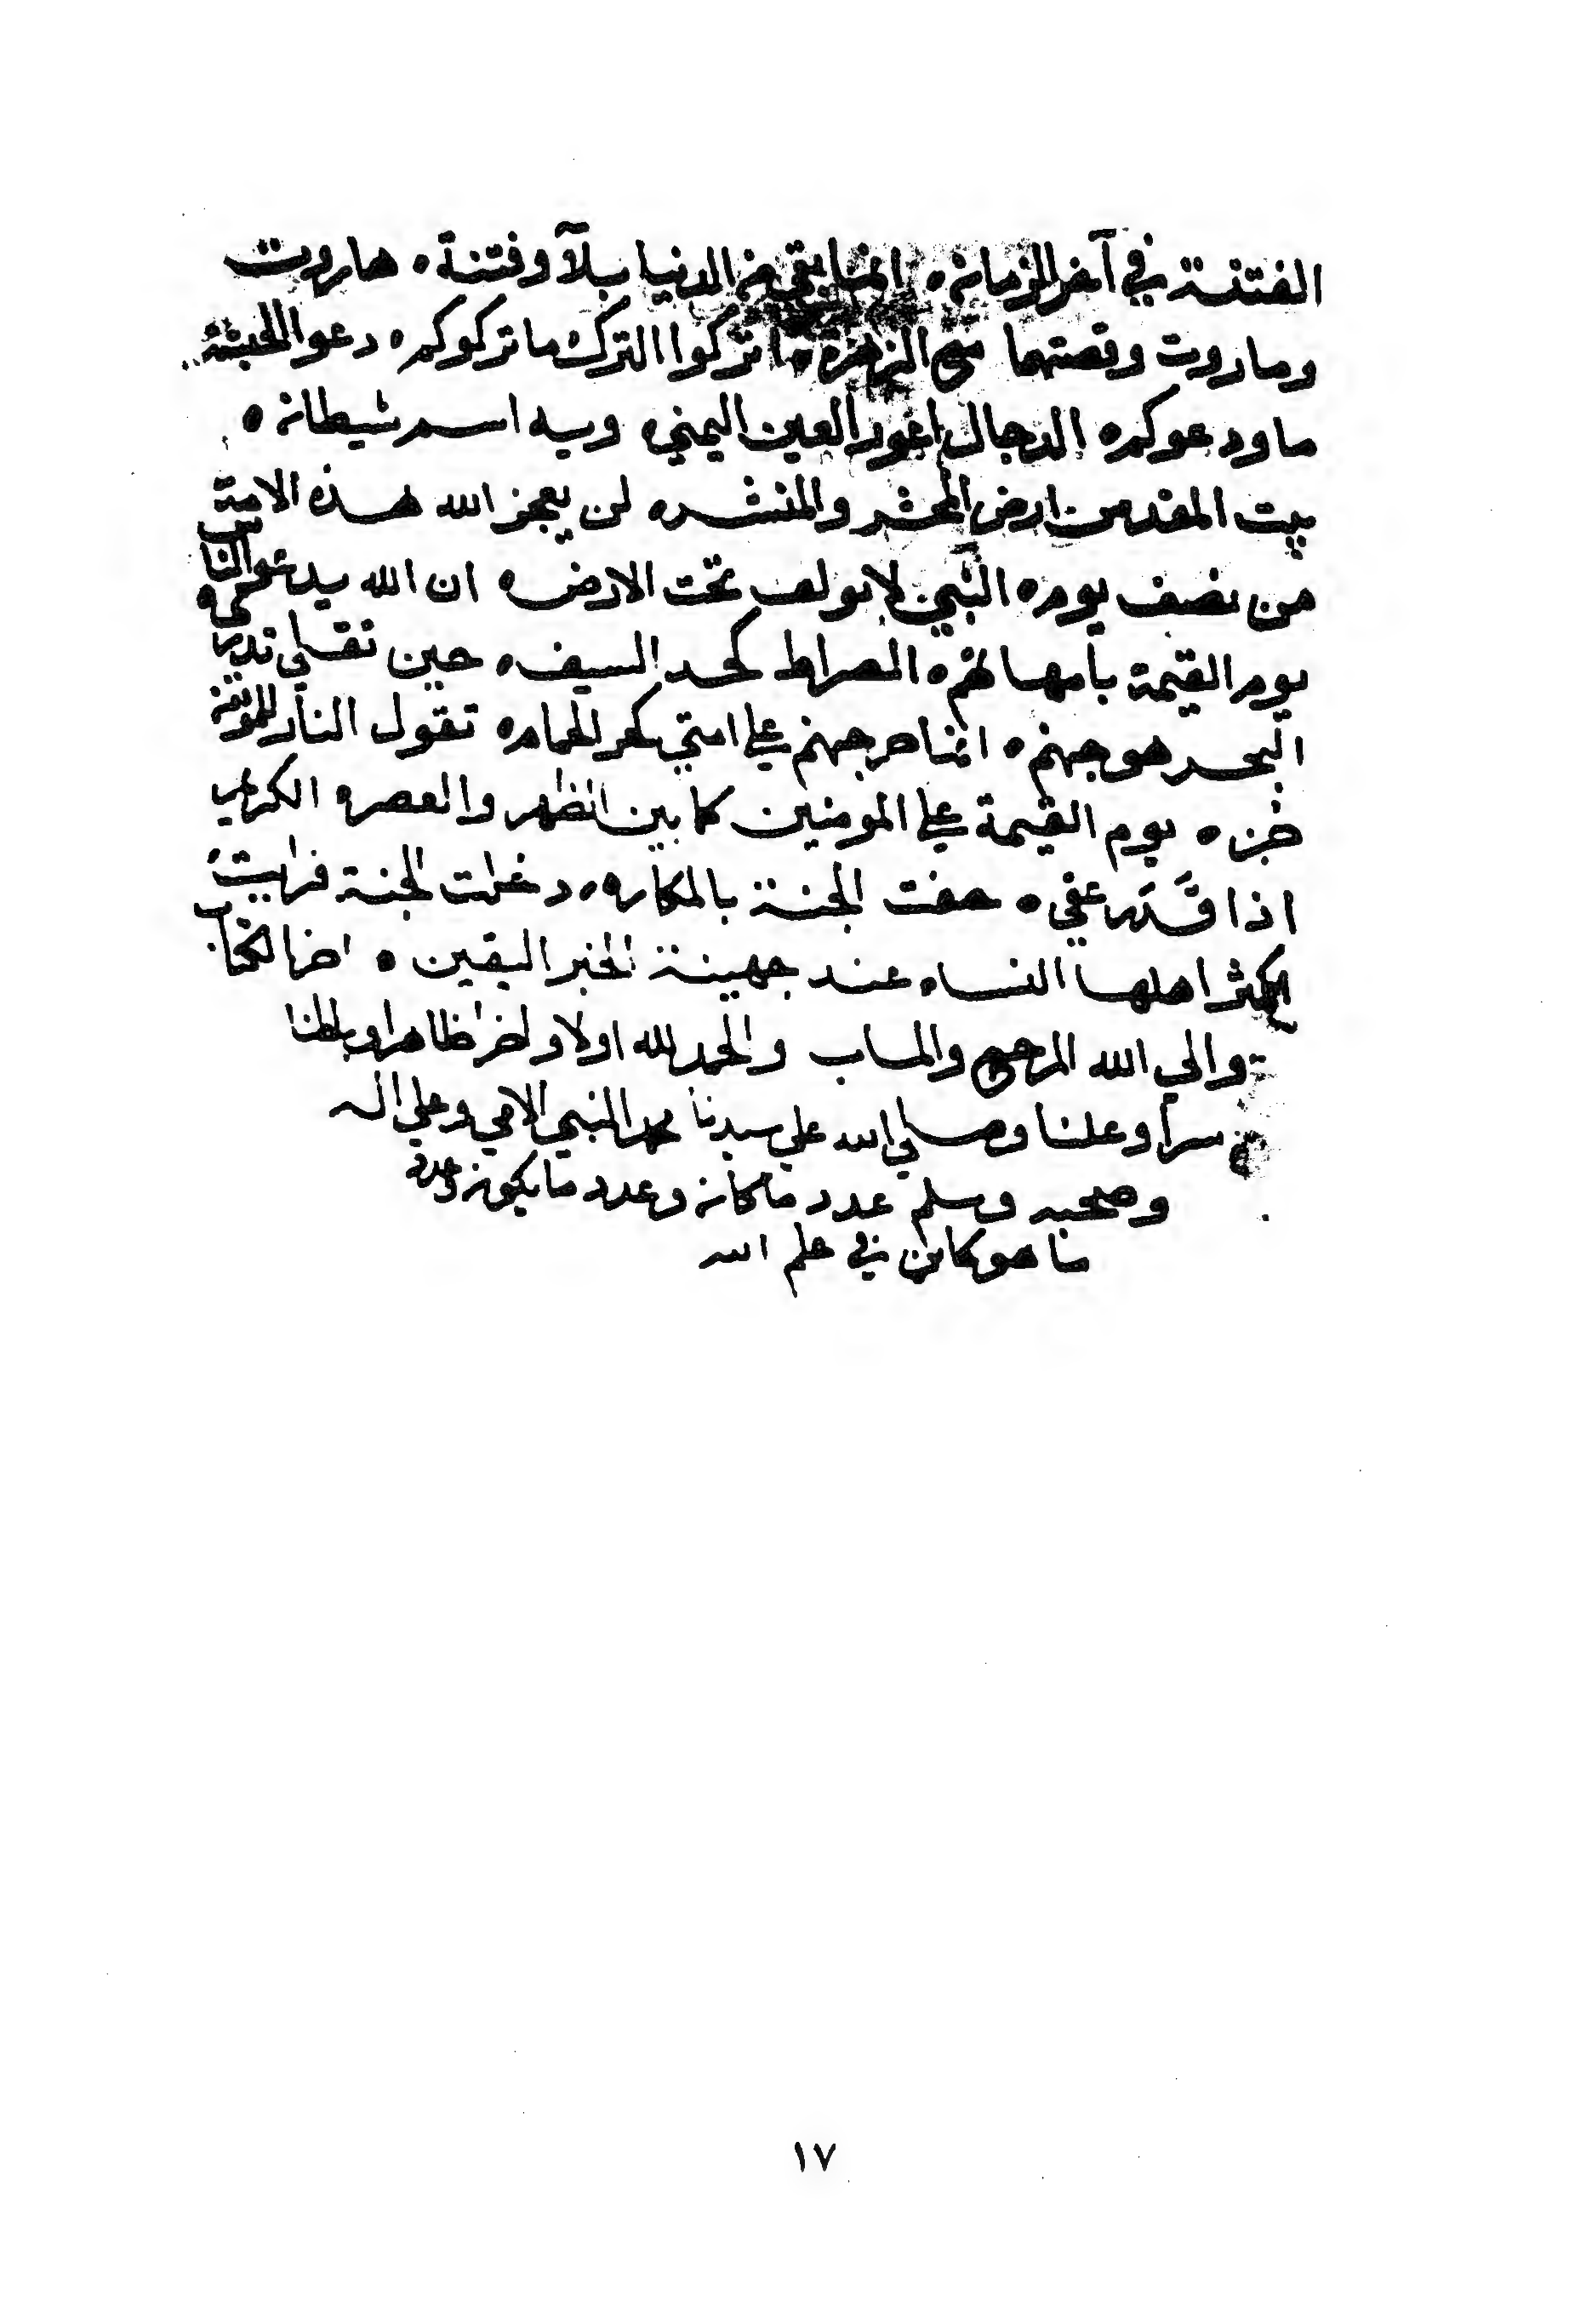 الفتنة في آخر الزمان ه انما بقي من الدنيا بلآ وفتنة ه هاروت
وماروت وقصتهما مع الزهرة ه اتركوا الترك ما تركوكم ه دعوا الحبشة
ما ودعوكم ه الدجال اعور العين اليمني ه ويه اسم شيطان ه
بيت المقدس ارض المحشر والمنشر ه لن يعجز الله هذه الامة
من نصف يوم ه النبي لا يولف تحت الارض ه ان الله يدعو الناس
يوم القيمة بامهاتهم ه الصراط كحد السيف ه حين تقلي
البحر هو جهنم ه انما حر جهنم علي امتي كحر الحمام ه تقول النار للمؤمن
جز ه يوم القيمة علي المومنين كما بين الظهر والعصر ه الكريم
اذا قدر عفي ه حفت الجنة بالمكاره ه دخلت الجنة فرايت
اكثر اهلها النساء ه عند جهينة الخبر اليقين ه اخر الكتاب
والي الله المرجع والماب والحمد لله اولا واخرا ظاهرا وباطنا
سرا وعلنا وصلي الله علي سيدنا محمد النبي الامي وعلي اله
وصحبه وسلم عدد ما كان وعدد ما يكون وعدد
ما هو كائن في علم الله
١٧